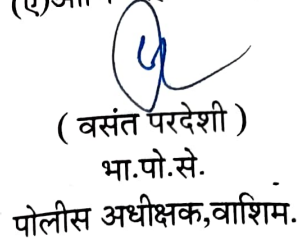 ( वसंत परदेशी )
भा.पो.से.
पोलीस अधीक्षक,वाशिम.